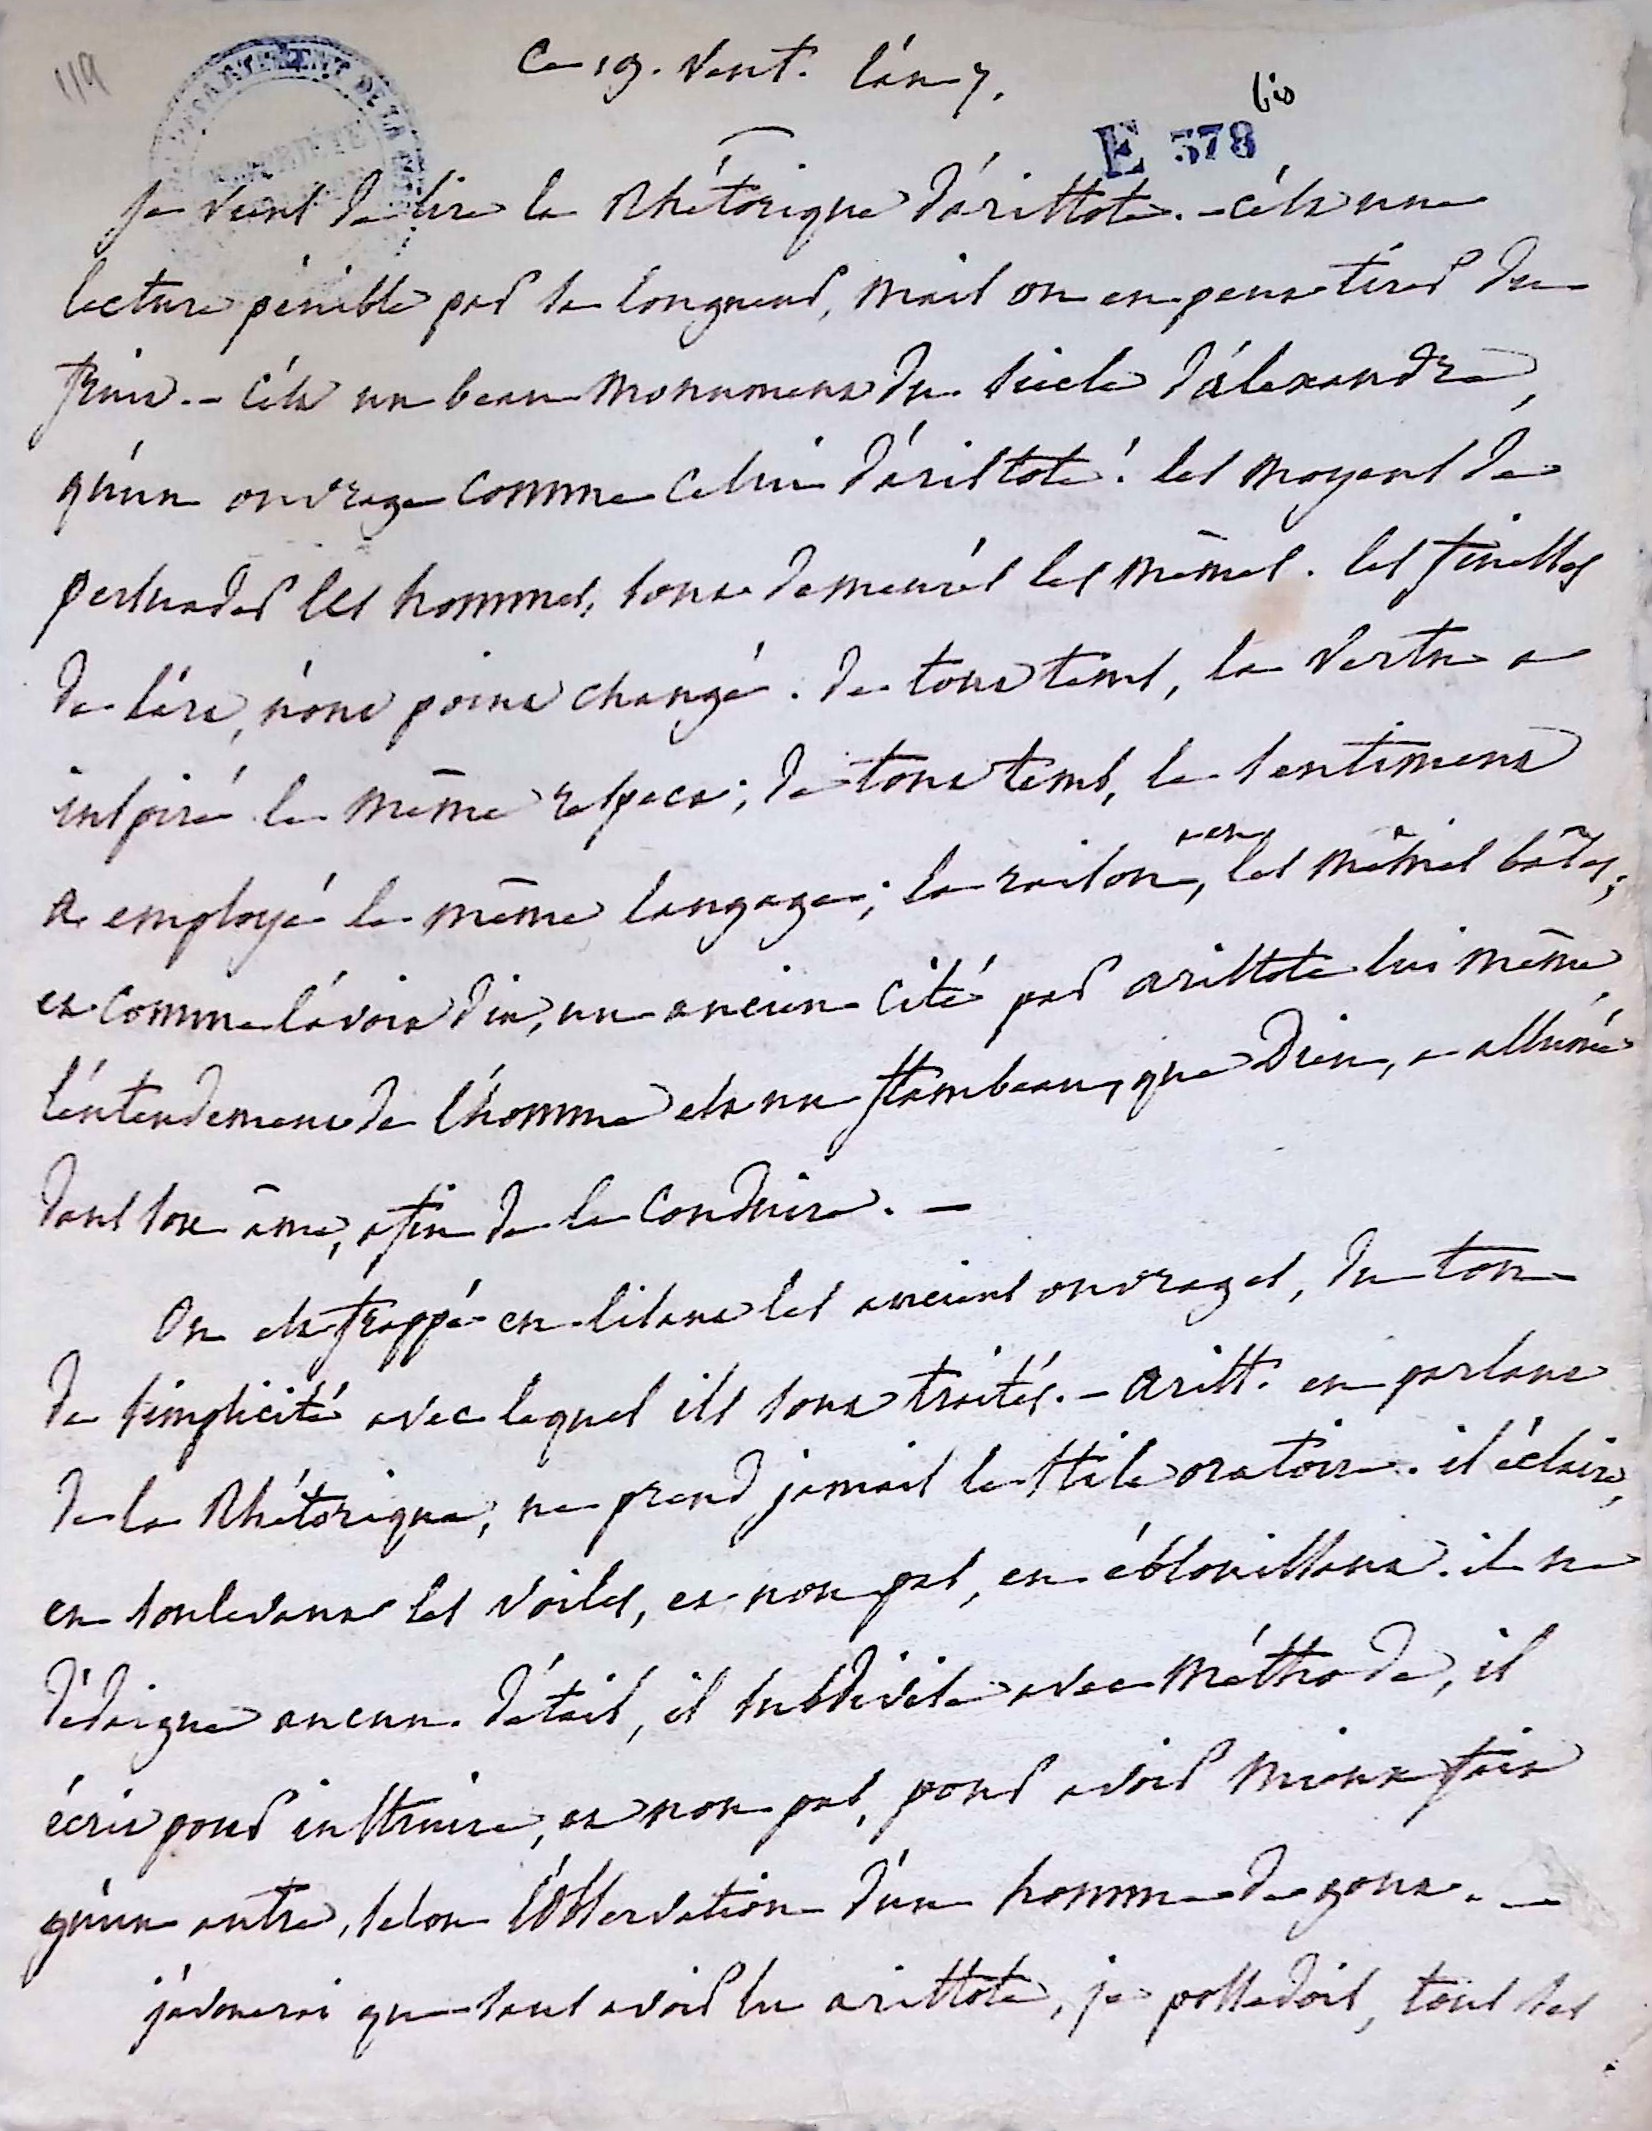 119
Ce 19. vent. l'an 7.
bis
E 378
DÉPARTEMENT DE LA
PROPRIÉTÉ
je viens de lire la Rhétorique d'aristote. - c'est une
lecture pénible par sa longueur, mais on en peut tirer du
fruit. - c'est un beau monument du siècle d'alexandre,
qu'un ouvrage comme celui d'aristote! les moyens de
persuader les hommes, sont demeurés les mêmes. les finesses
de l'art, n'ont point changé. de tout tems, la vertu a
inspiré le même respect; de tout tems, le sentiment
a employé le même langage; la raison, a eu les mêmes bases;
et comme l'avoit dit, un ancien cité par aristote lui même,
l'entendement de l'homme est un flambeau, que Dieu, a allumé
dans son âme, afin de le conduire. -
On est frappé en lisant les anciens ouvrages, du ton
de simplicité avec lequel ils sont traités. - arist. en parlant
de la Rhétorique, ne prend jamais le stile oratoire. il éclaire,
en soulevant les voiles, et non pas, en éblouissant. il ne
dédaigne aucun détail, il subdivise avec méthode, il
écrit pour instruire, et non pas, pour avoir mieux fait
qu'un autre, selon l'observation d'un homme de goût. -
j'avouerai que sans avoir lu aristote, je possedois, tous ses